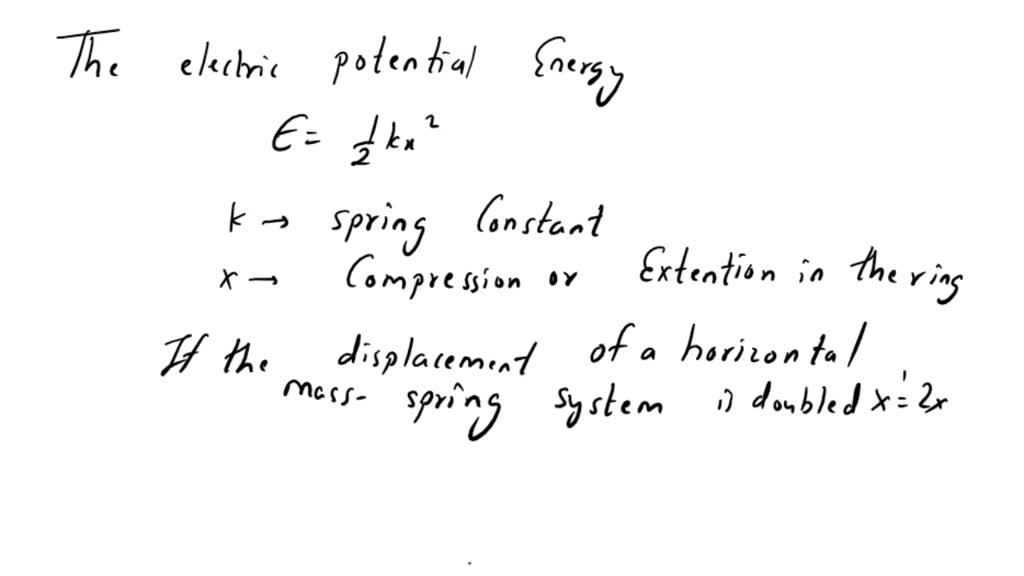 The electric potential Energy
E = 1/2 kx²
k → spring Constant
x → Compression or Extention in the ring
If the displacement of a horizontal
mass- spring system is doubled x' = 2x